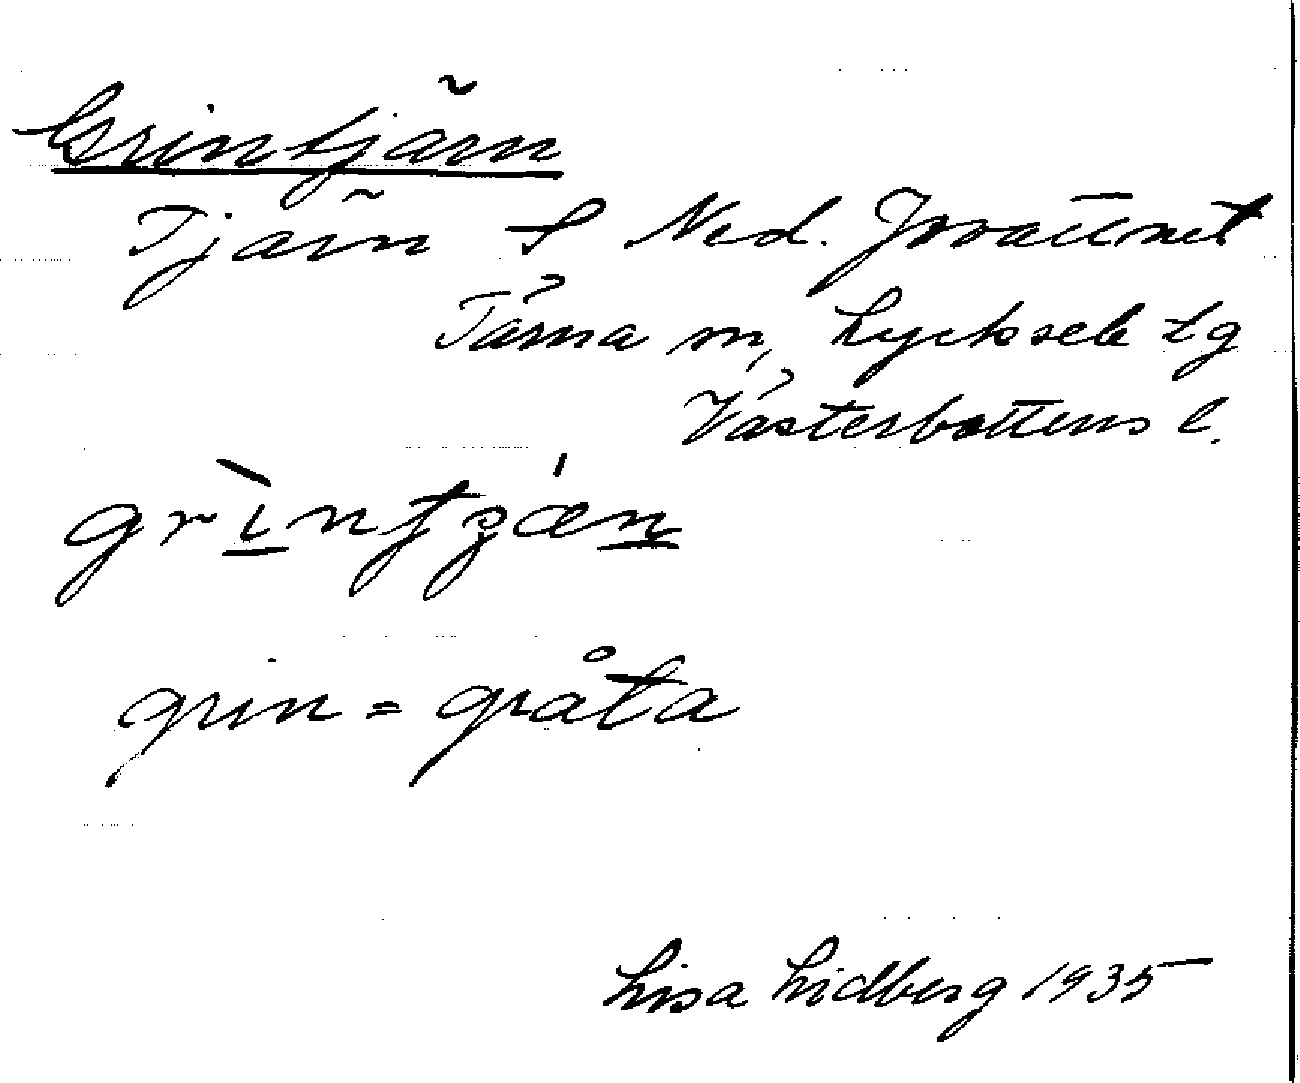 Grintjärn
Tjärn S Ned. Jovattnet
Tärna sn, Lycksele lg
Västerbottens l.
grin = gråta
Lisa Lidberg 1935